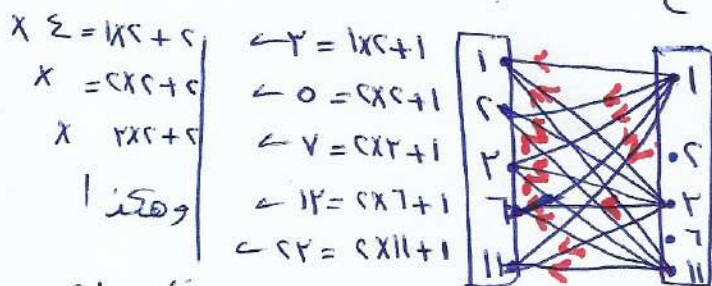 ١
٢
٣
٦
١١
١
٢
٣
٦
١١
١+٢×١=٣ ←
١+٢×٢=٥ ←
١+٣×٢=٧ ←
١+٦×٢=١٣ ←
١+١١×٢=٢٣ ←
٢+٢×١=٤ ×
٢+٢×٢= ×
٢+٢×٣ ×
وهكذا